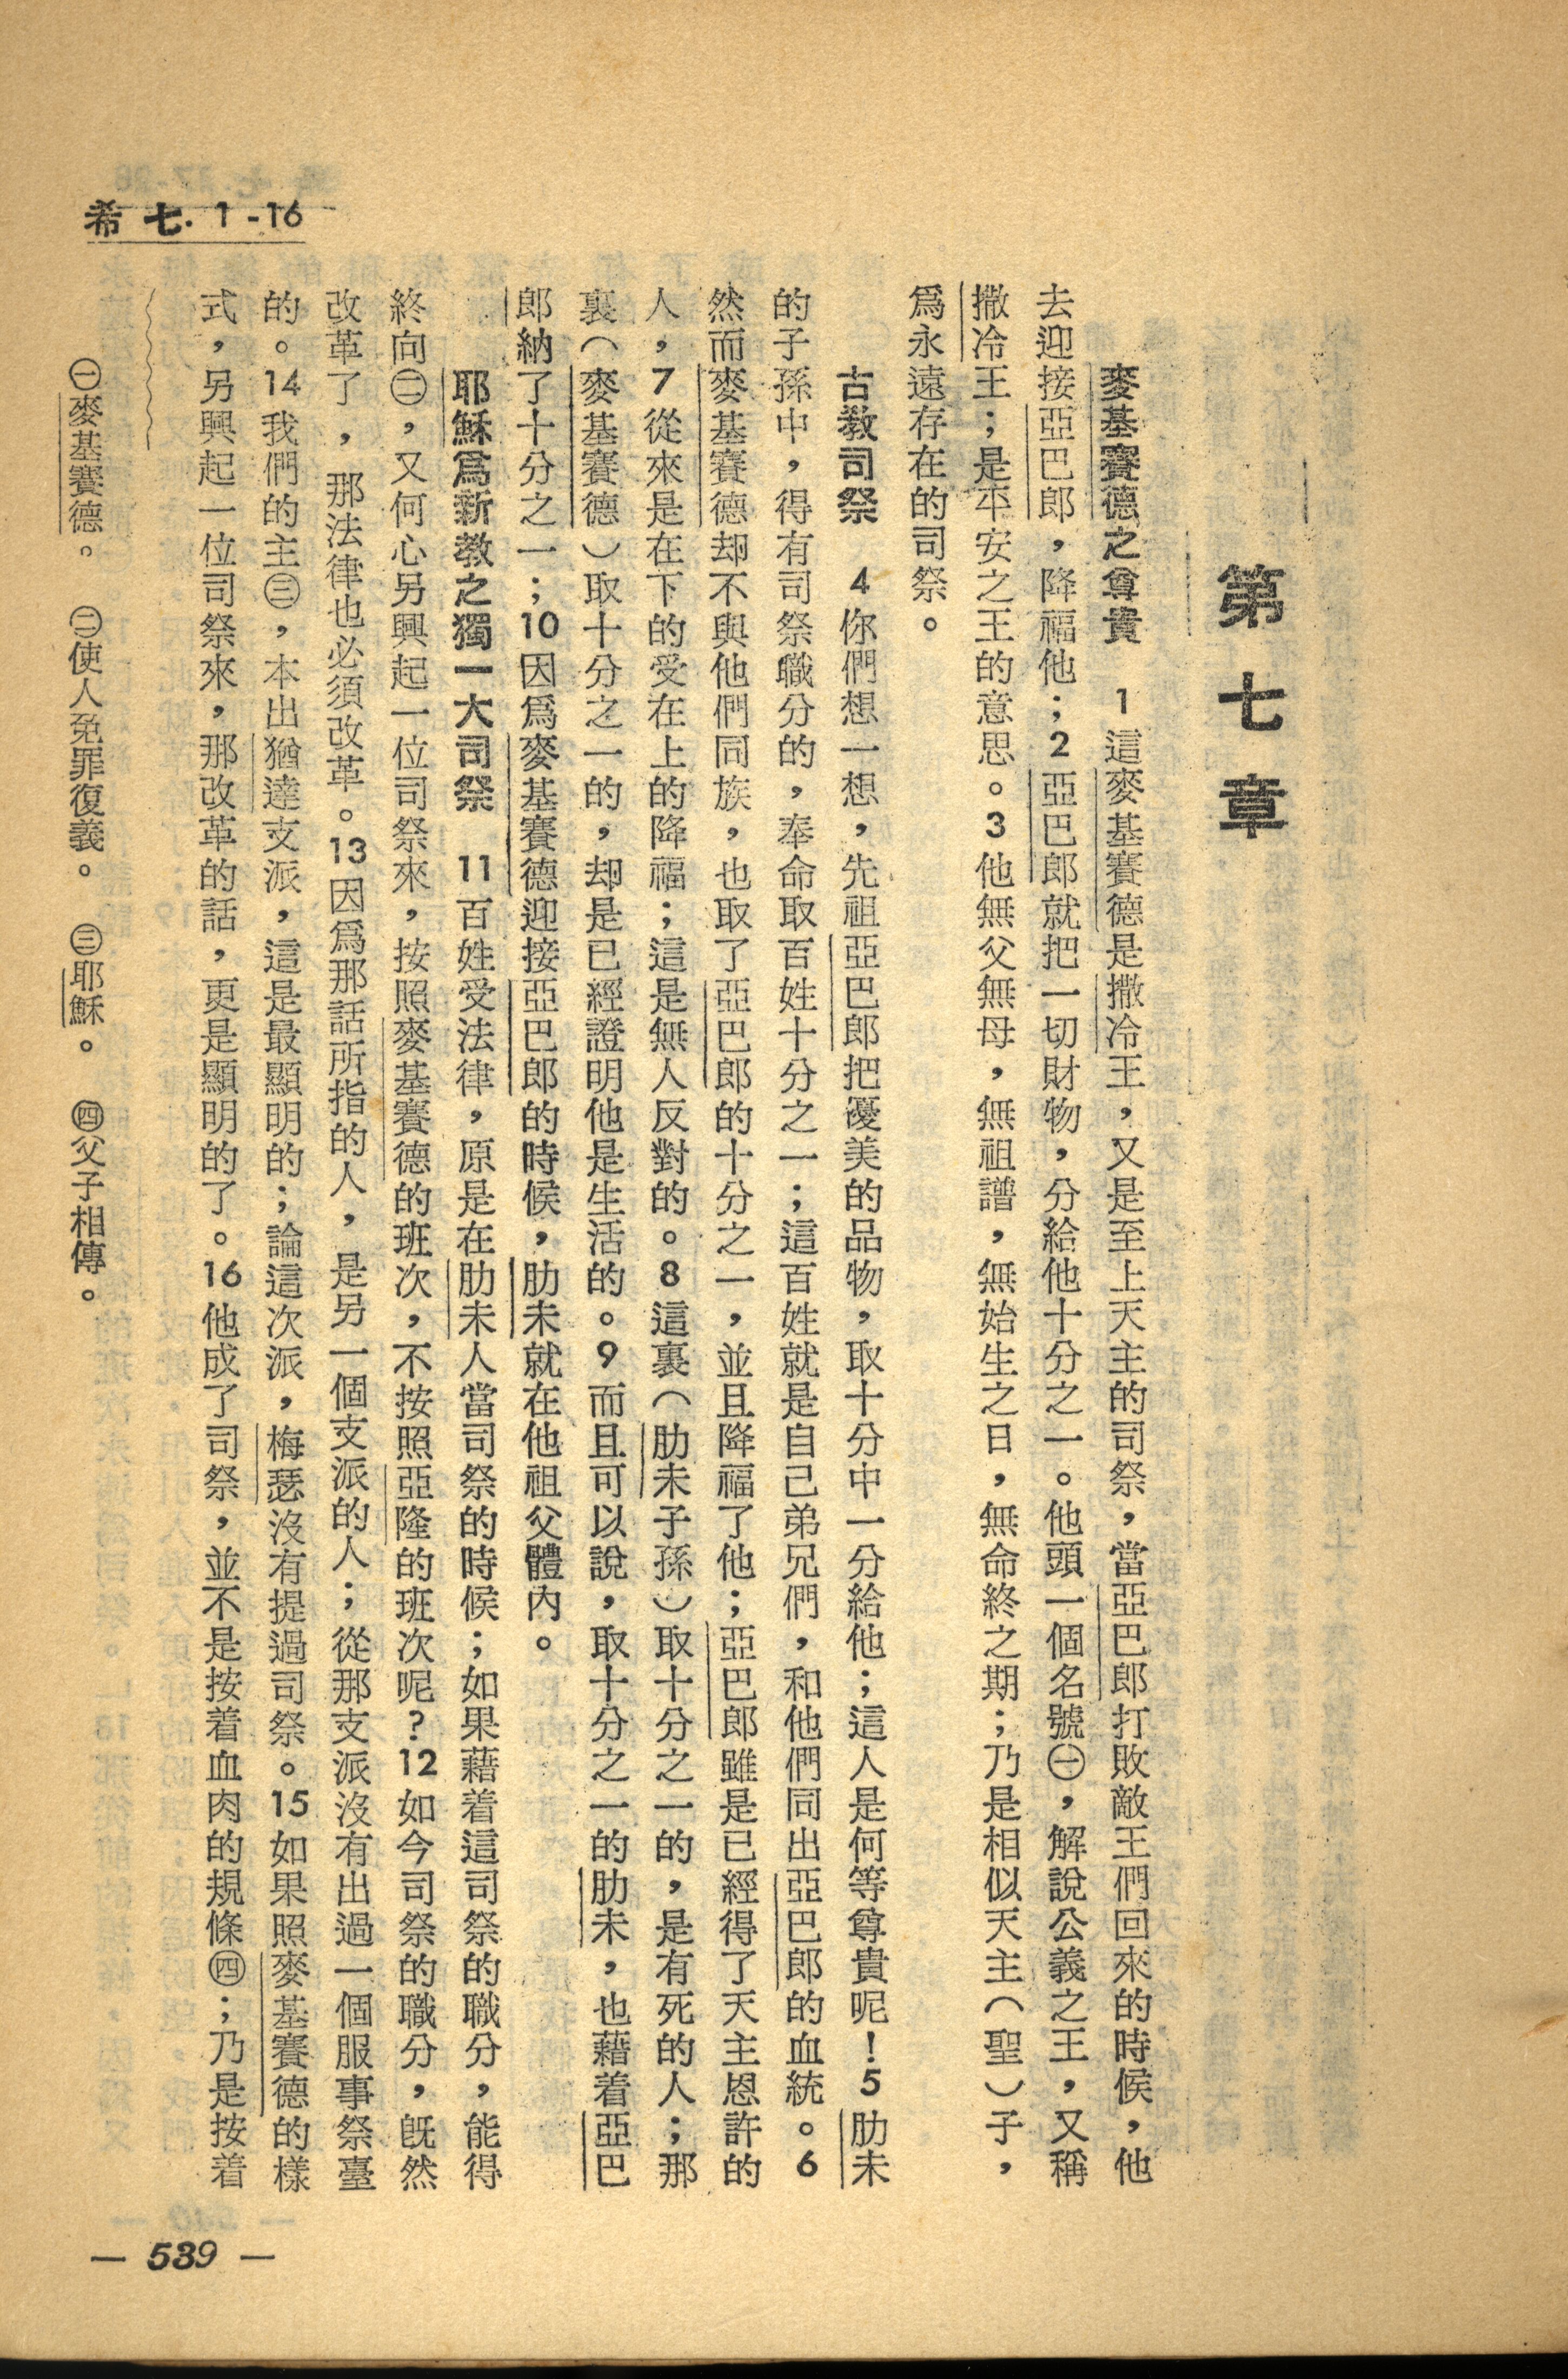 希 七. 1-16
第七章
麥基賽德之尊貴 1這麥基賽德是撒冷王，又是至上天主的司祭，當亞巴郎打敗敵王們回來的時候，他
去迎接亞巴郎，降福他；2亞巴郎就把一切財物，分給他十分之一。他頭一個名號㊀，解說公義之王，又稱
撒冷王；是平安之王的意思。3他無父無母，無祖譜，無始生之日，無命終之期；乃是相似天主（聖）子，
爲永遠存在的司祭。
古教司祭 4你們想一想，先祖亞巴郎把優美的品物，取十分中一分給他；這人是何等尊貴呢！5肋未
的子孫中，得有司祭職分的，奉命取百姓十分之一；這百姓就是自己弟兄們，和他們同出亞巴郎的血統。6
然而麥基賽德却不與他們同族，也取了亞巴郎的十分之一，並且降福了他；亞巴郎雖是已經得了天主恩許的
人，7從來是在下的受在上的降福；這是無人反對的。8這裏（肋未子孫）取十分之一的，是有死的人；那
裏（麥基賽德）取十分之一的，却是已經證明他是生活的。9而且可以說，取十分之一的肋未，也藉着亞巴
郎納了十分之一；10因爲麥基賽德迎接亞巴郎的時候，肋未就在他祖父體內。
耶穌爲新教之獨一大司祭 11百姓受法律，原是在肋未人當司祭的時候；如果藉着這司祭的職分，能得
終向㊁，又何心另興起一位司祭來，按照麥基賽德的班次，不按照亞隆的班次呢？12如今司祭的職分，旣然
改革了，那法律也必須改革。13因爲那話所指的人，是另一個支派的人；從那支派沒有出過一個服事祭臺
的。14我們的主㊂，本出猶達支派，這是最顯明的；論這次派，梅瑟沒有提過司祭。15如果照麥基賽德的樣
式，另興起一位司祭來，那改革的話，更是顯明的了。16他成了司祭，並不是按着血肉的規條㊃；乃是按着
㊀麥基賽德。 ㊁使人免罪復義。 ㊂耶穌。 ㊃父子相傳。
— 539 —